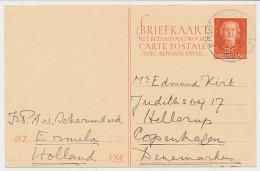 BRIEFKAART
MET BETAALD ANTWOORD
CARTE POSTALE
AVEC RÉPONSE PAYÉE
NEDERLAND
Mr Edmund Kirt
Judithsvej 17
Hellerup
Copenhagen
Denemarken
Schermbeek
AFZ. Ermelo
Holland
EXP.